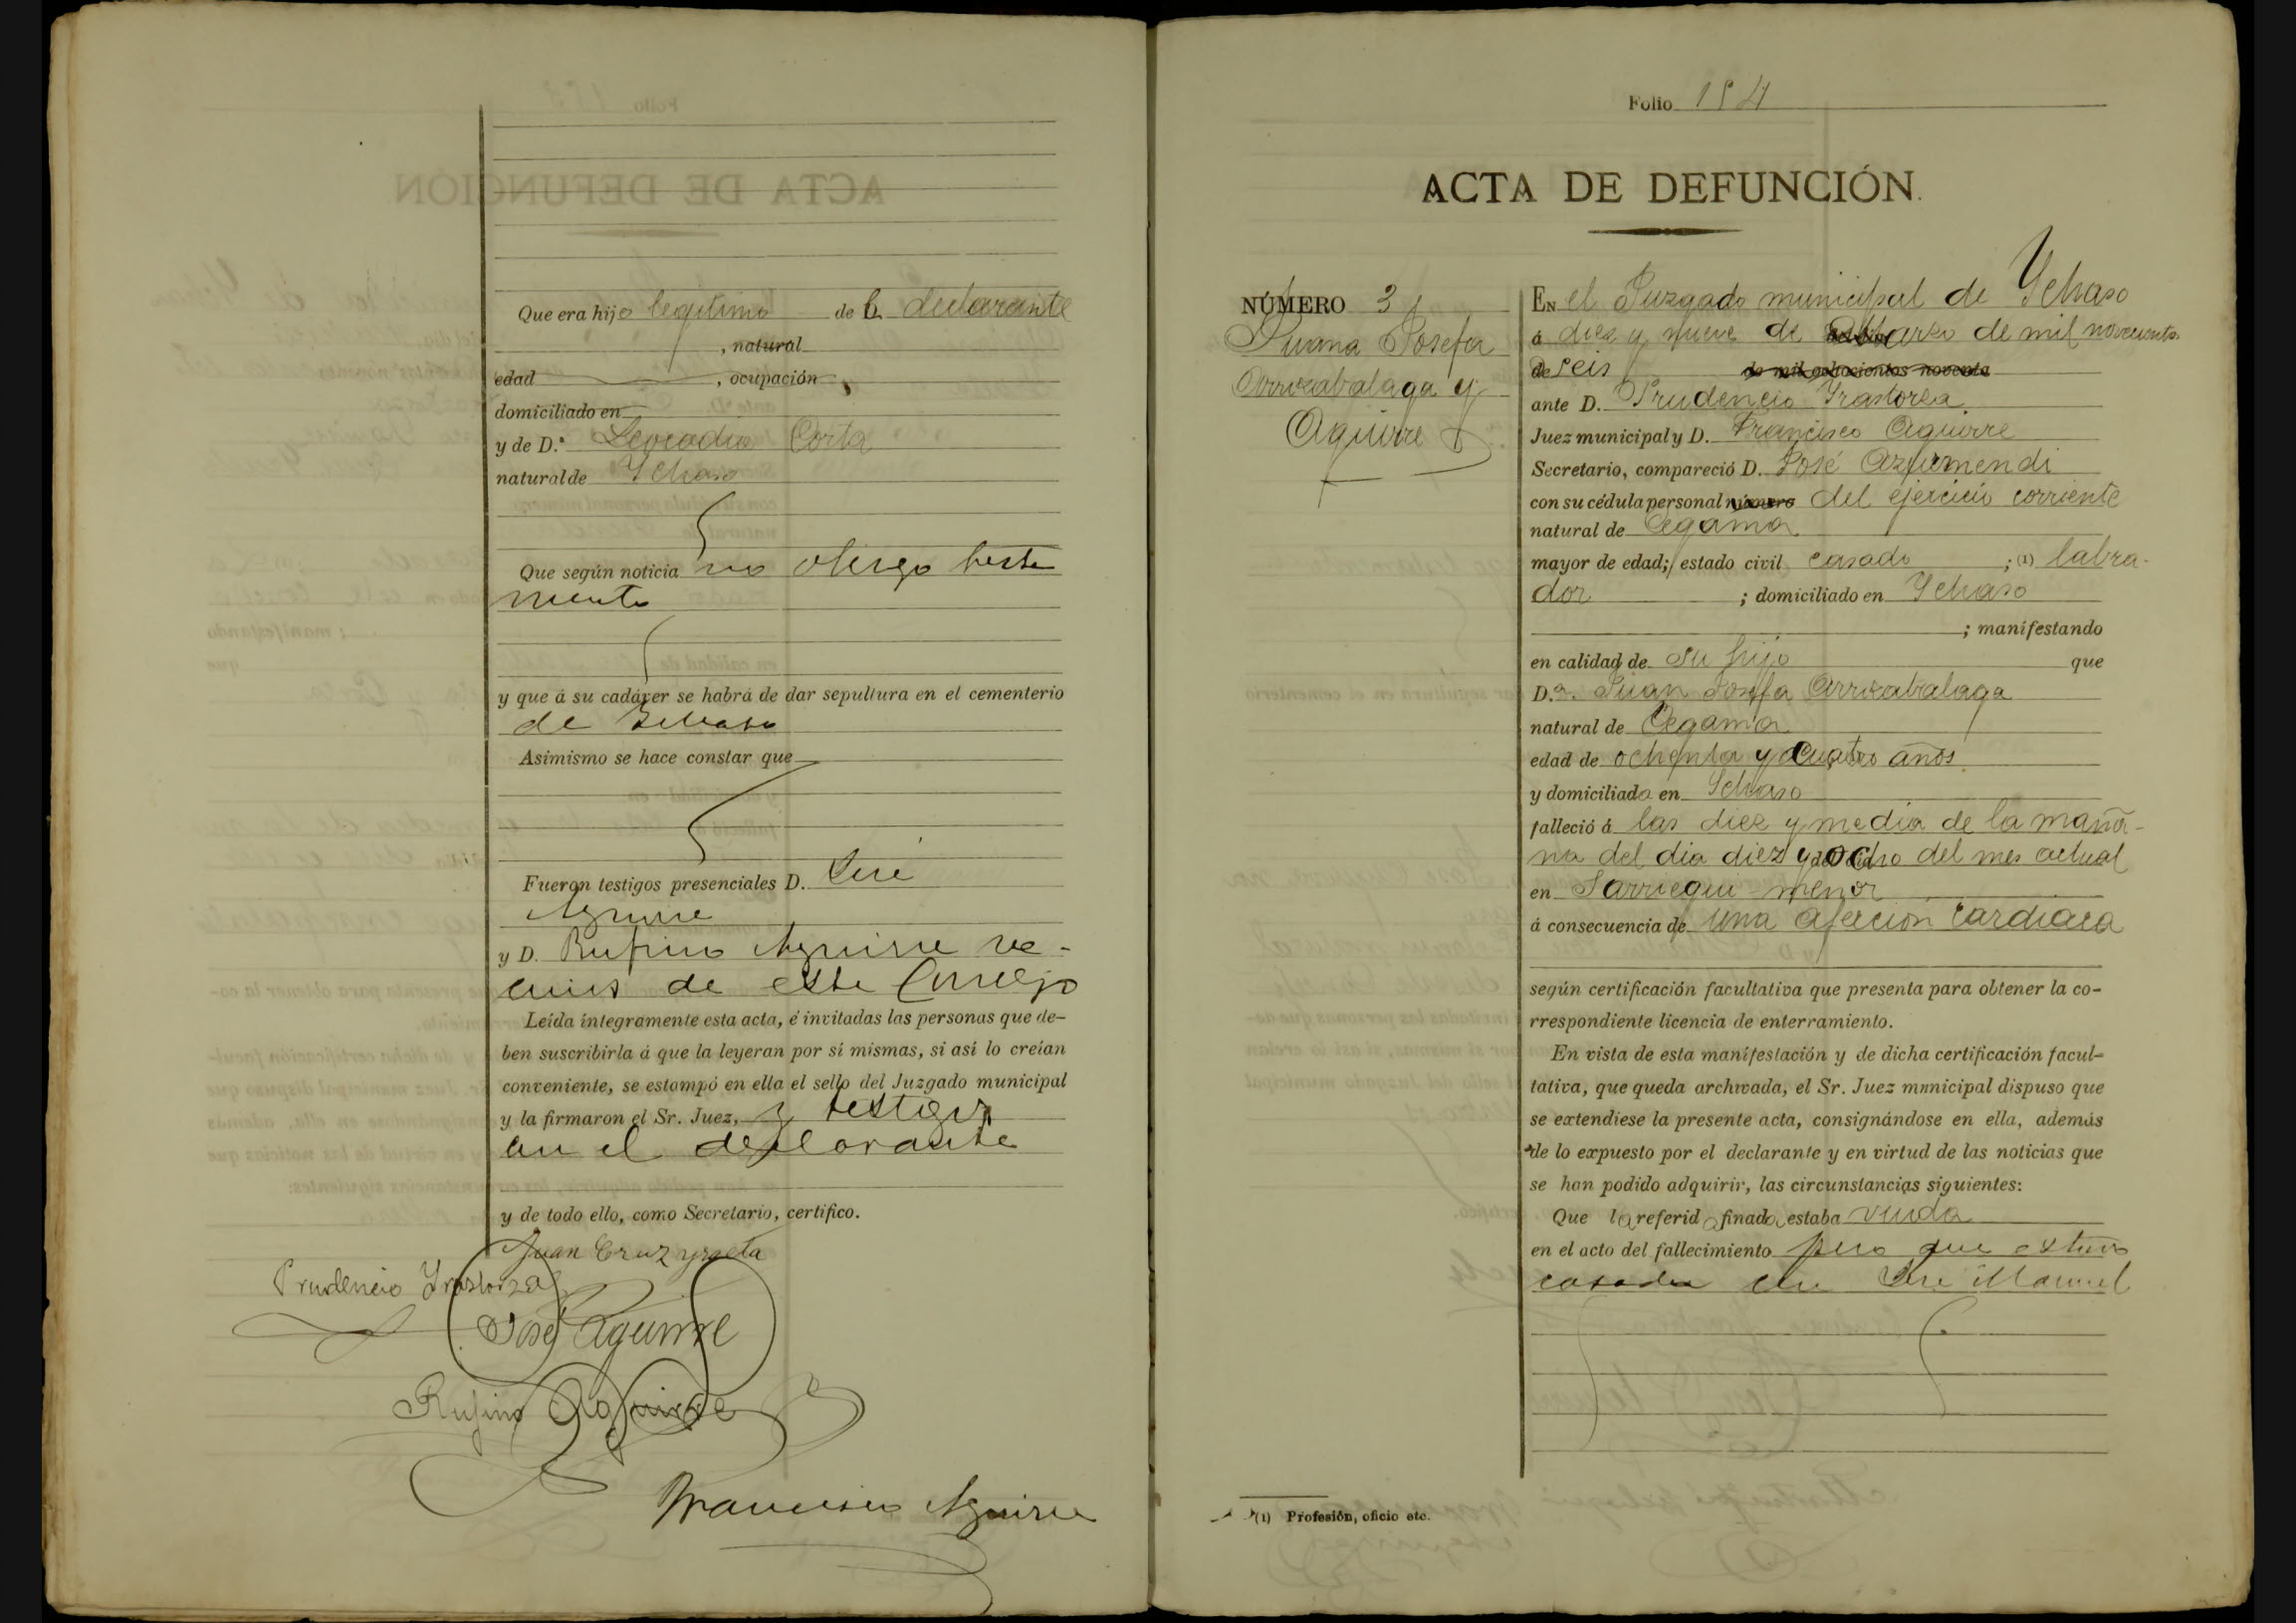 Que era hijo legitimo de la declarante
, natural
edad , ocupación
domiciliado en
y de D.ª Leocadia Corta
natural de Ychaso
Que según noticia no otorgo testa
mento
y que á su cadáver se habrá de dar sepultura en el cementerio
de Ychaso
Asimismo se hace constar que
Fueron testigos presenciales D. José
Aguirre
y D. Rufino Aguirre ve-
cinos de este Concejo
Leída íntegramente esta acta, é invitadas las personas que de-
ben suscribirla á que la leyeran por sí mismas, si así lo creían
conveniente, se estampó en ella el sello del Juzgado municipal
y la firmaron el Sr. Juez, y testigos
con el declarante
y de todo ello, como Secretario, certifico.
Juan Cruz
Prudencio Yrastorza
José Aguirre
Rufino Aguirre
Francisco Aguirre
Folio 154
ACTA DE DEFUNCIÓN.
NÚMERO 3
Juana Josefa
Arrizabalaga y
Aguirre
EN el Juzgado municipal de Ychaso
á diez y nueve de Marzo de mil novecientos
de seis de mil ochocientos noventa
ante D. Prudencio Yrastorza
Juez municipal y D. Francisco Aguirre
Secretario, compareció D. José Azurmendi
con su cédula personal número del ejercicio corriente
natural de Cegama
mayor de edad; estado civil casado ; (1) labra-
dor ; domiciliado en Ychaso
; manifestando
en calidad de su hijo que
D.ª Juan Josefa Arrizabalaga
natural de Cegama
edad de ochenta y cuatro años
y domiciliada en Ychaso
falleció á las diez y media de la maña-
na del dia diez y ocho del mes actual
en Sarriegui menor
á consecuencia de una afección cardiaca
según certificación facultativa que presenta para obtener la co-
rrespondiente licencia de enterramiento.
En vista de esta manifestación y de dicha certificación facul-
tativa, que queda archivada, el Sr. Juez municipal dispuso que
se extendiese la presente acta, consignándose en ella, además
de lo expuesto por el declarante y en virtud de las noticias que
se han podido adquirir, las circunstancias siguientes:
Que la referida finada estaba viuda
en el acto del fallecimiento pero que estuvo
casada con José Manuel
(1) Profesión, oficio etc.